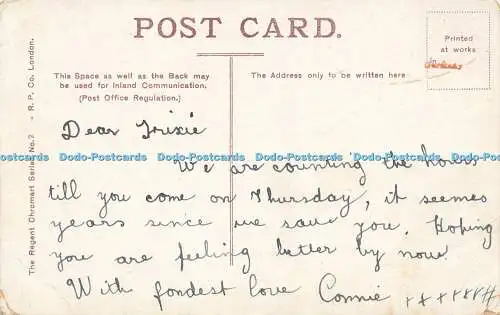 POST CARD.
Printed
at works
This Space as well as the Back may
be used for Inland Communication.
(Post Office Regulation.)
The Address only to be written here
The Regent Chromart Series. No. 2 - R. P. Co. London.
Dear Trixie
Dodo-Postcards Dodo-Postcards Dodo-Postcards Dodo-Postcards Dodo-Postcards
We are counting the hours
till you come on Thursday, it seemes
years since we saw you. Hoping
you are feeling better by now
With fondest love Connie x x x x x x